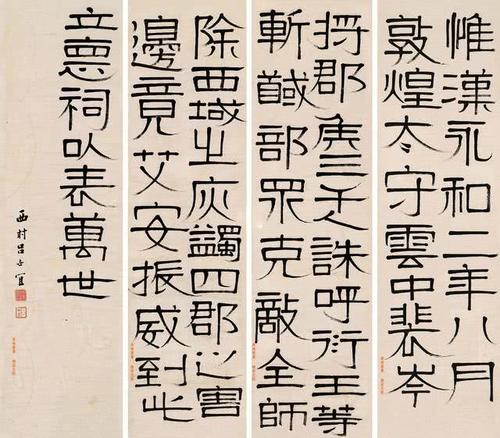 惟漢永和二年八月
敦煌太守雲中裴岑
将郡兵三千人誅呼衍王等
斬馘部眾克敵全師
除西域之灾蠲四郡之害
邊竟艾安振威到此
立悳祠以表萬世
西村呂世宜